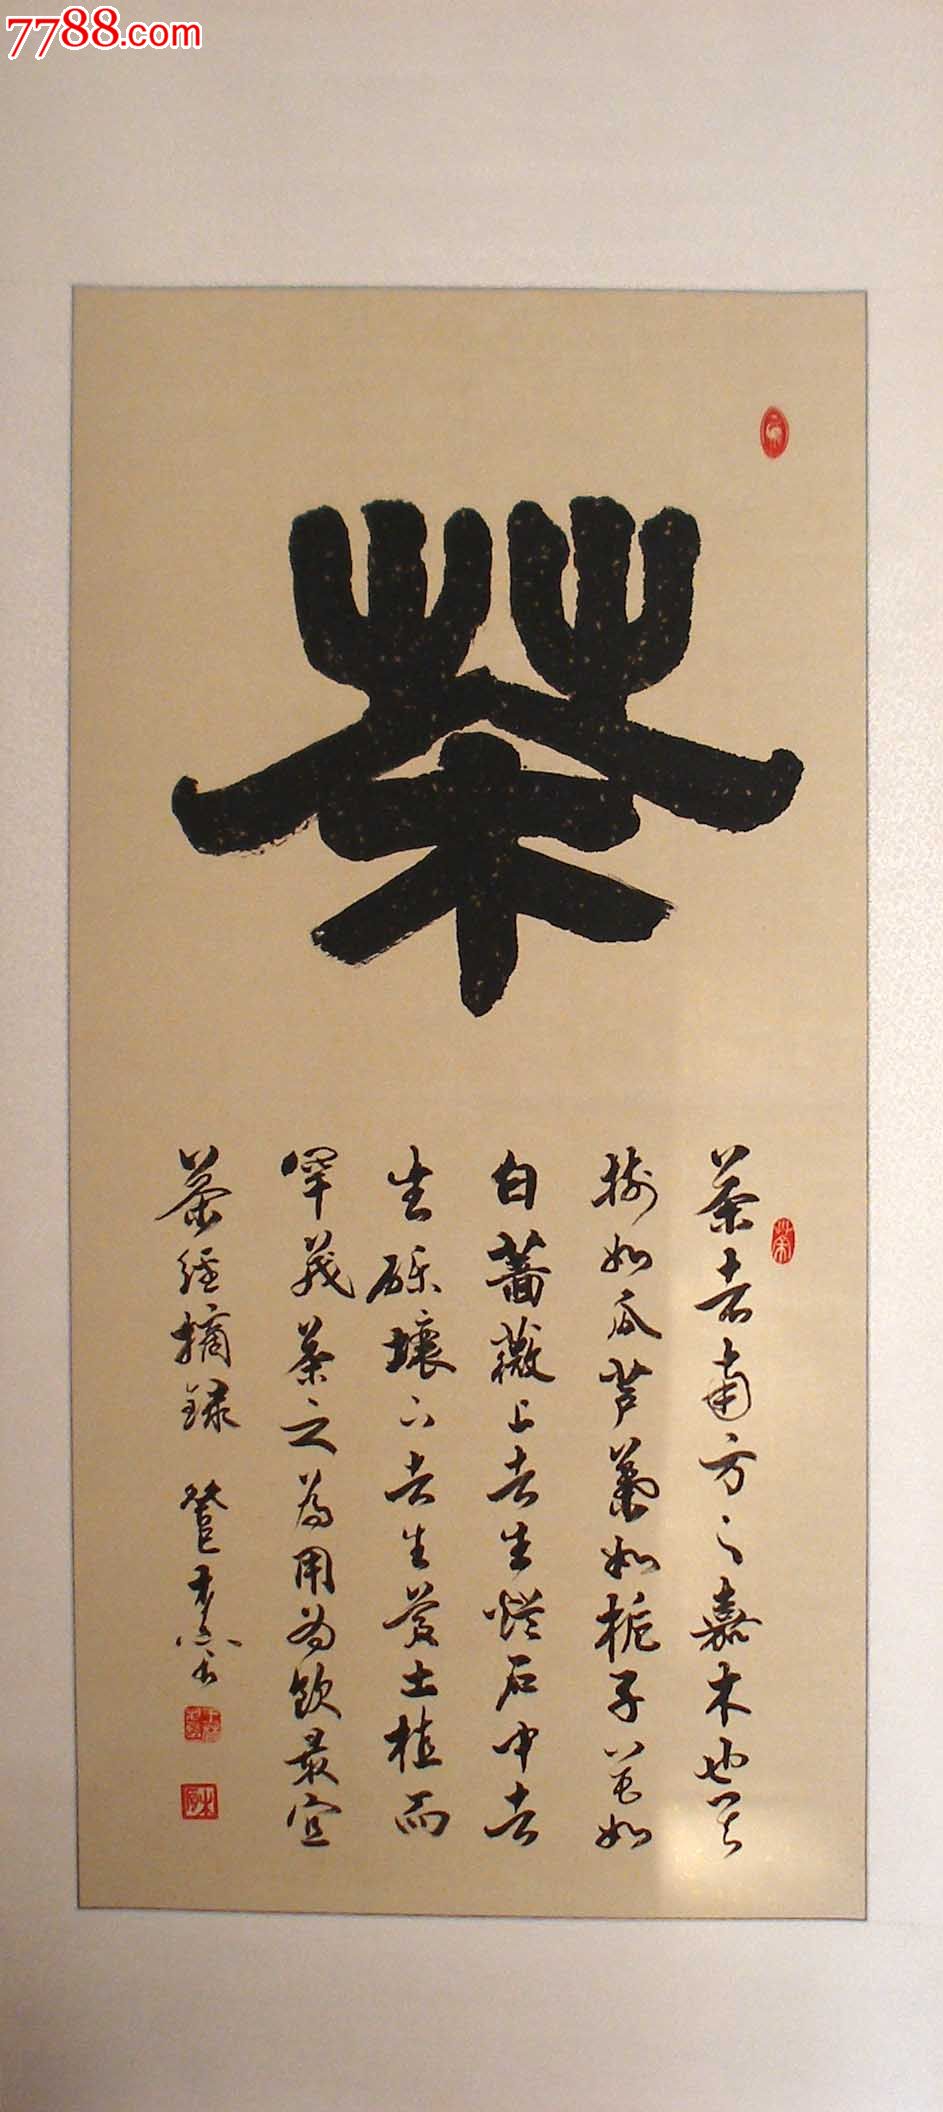 7788.com
茶
茶者南方之嘉木也其
樹如瓜芦葉如栀子花如
白薔薇上者生爛石中者
生礫壤下者生黄土植而
罕茂茶之為用為飲最宜
茶經摘録